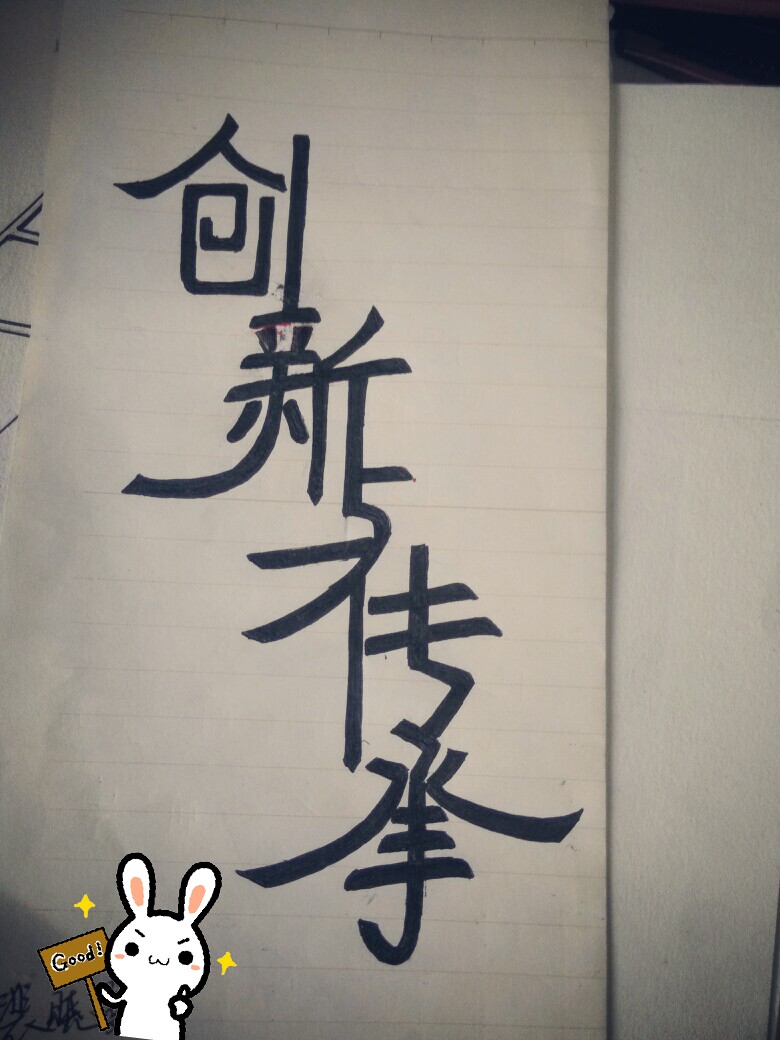 创新与传承
Good!